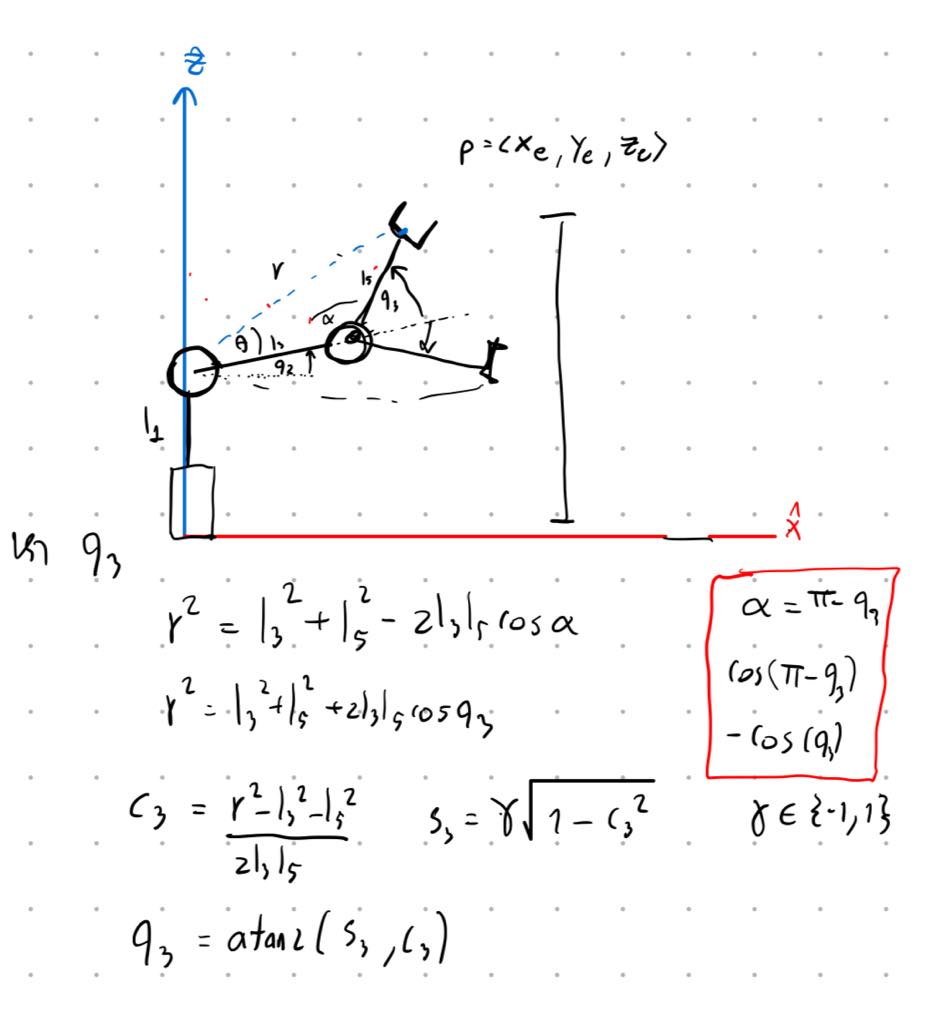 ẑ
p = <xₑ, yₑ, zₑ>
r
l₅
q₃
α
θ
l₃
q₂
l₁
x̂
หา q₃
r² = l₃² + l₅² - 2l₃l₅ cos α
α = π - q₃
r² = l₃² + l₅² + 2l₃l₅ cos q₃
cos(π - q₃)
- cos(q₃)
c₃ = (r² - l₃² - l₅²) / 2l₃l₅
s₃ = γ√(1 - c₃²)
γ ∈ {-1, 1}
q₃ = atan2(s₃, c₃)